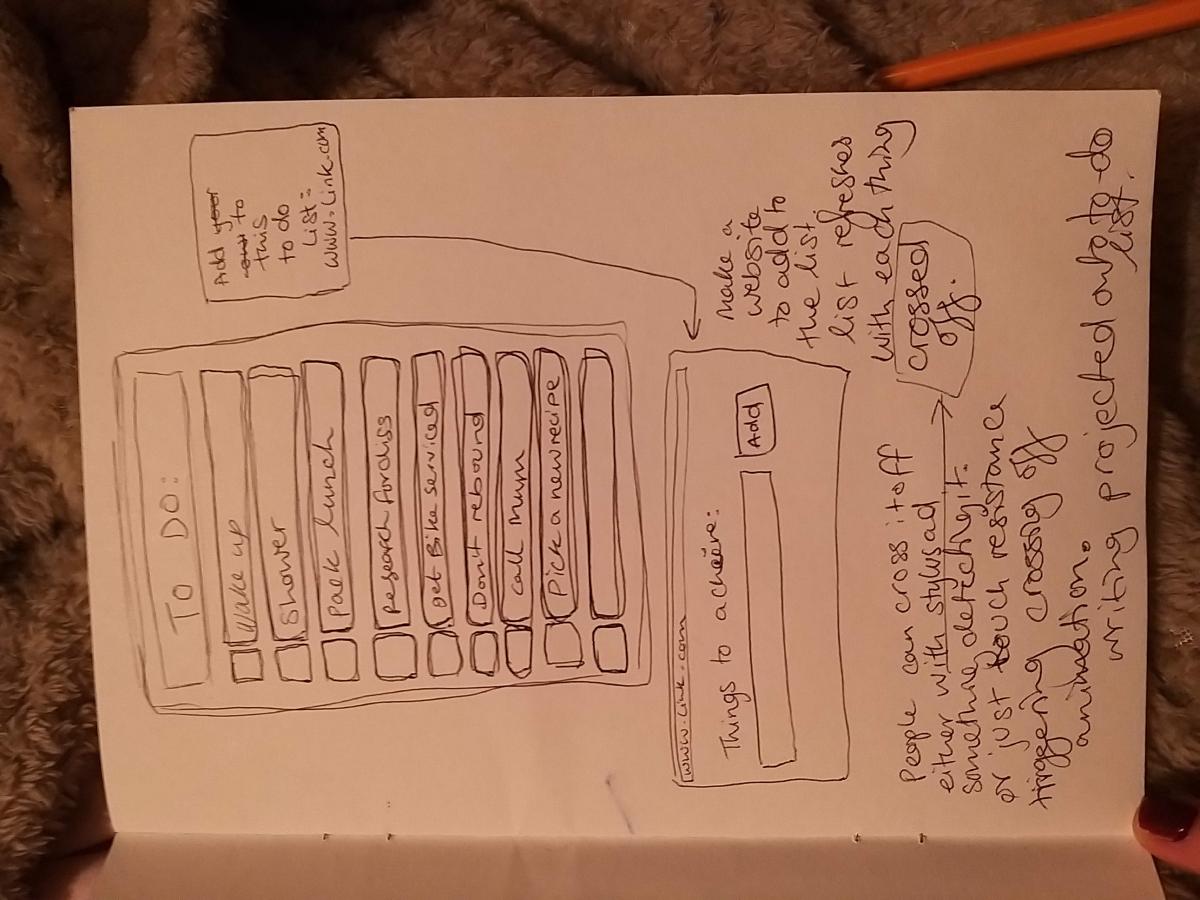 TO DO:
Wake up
Shower
Pack lunch
Research for diss
get Bike serviced
Don't rebound
Call Mum
Pick a new recipe
Add your
own to
this
to do
List:
www.Link.com
www.Link.com
Things to achieve:
Add
make a
website
to add to
the list
list refreshes
with each thing
crossed
off.
People can cross it off
either with stylus ad
something detecting it.
or just touch resistance
triggering crossing off
animation.
writing projected onto to-do
list.